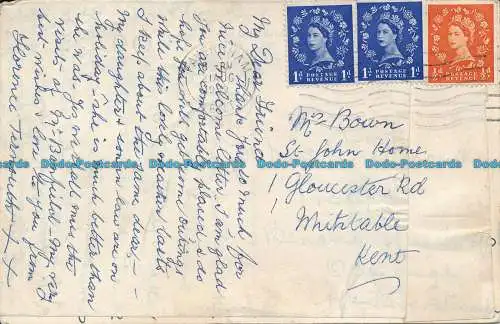 My Dear Friend
Thank you so much for
nice welcome letter. I am glad
you are comfortably placed & do
hope you will get some outings
while this lovely weather lasts
I keep about the same dear, –
My daughter & son in law are on
holiday, she is much better than
she was. My
visit. Mrs Banfield – My very
best wishes & love to you from
Florence X X
Mrs Bown
St. John Home
1 Gloucester Rd
Whitstable
Kent
1D POSTAGE REVENUE 1D
1D POSTAGE REVENUE 1D
½D POSTAGE REVENUE ½D
Dodo-Postcards Dodo-Postcards Dodo-Postcards Dodo-Postcards Dodo-Postcards